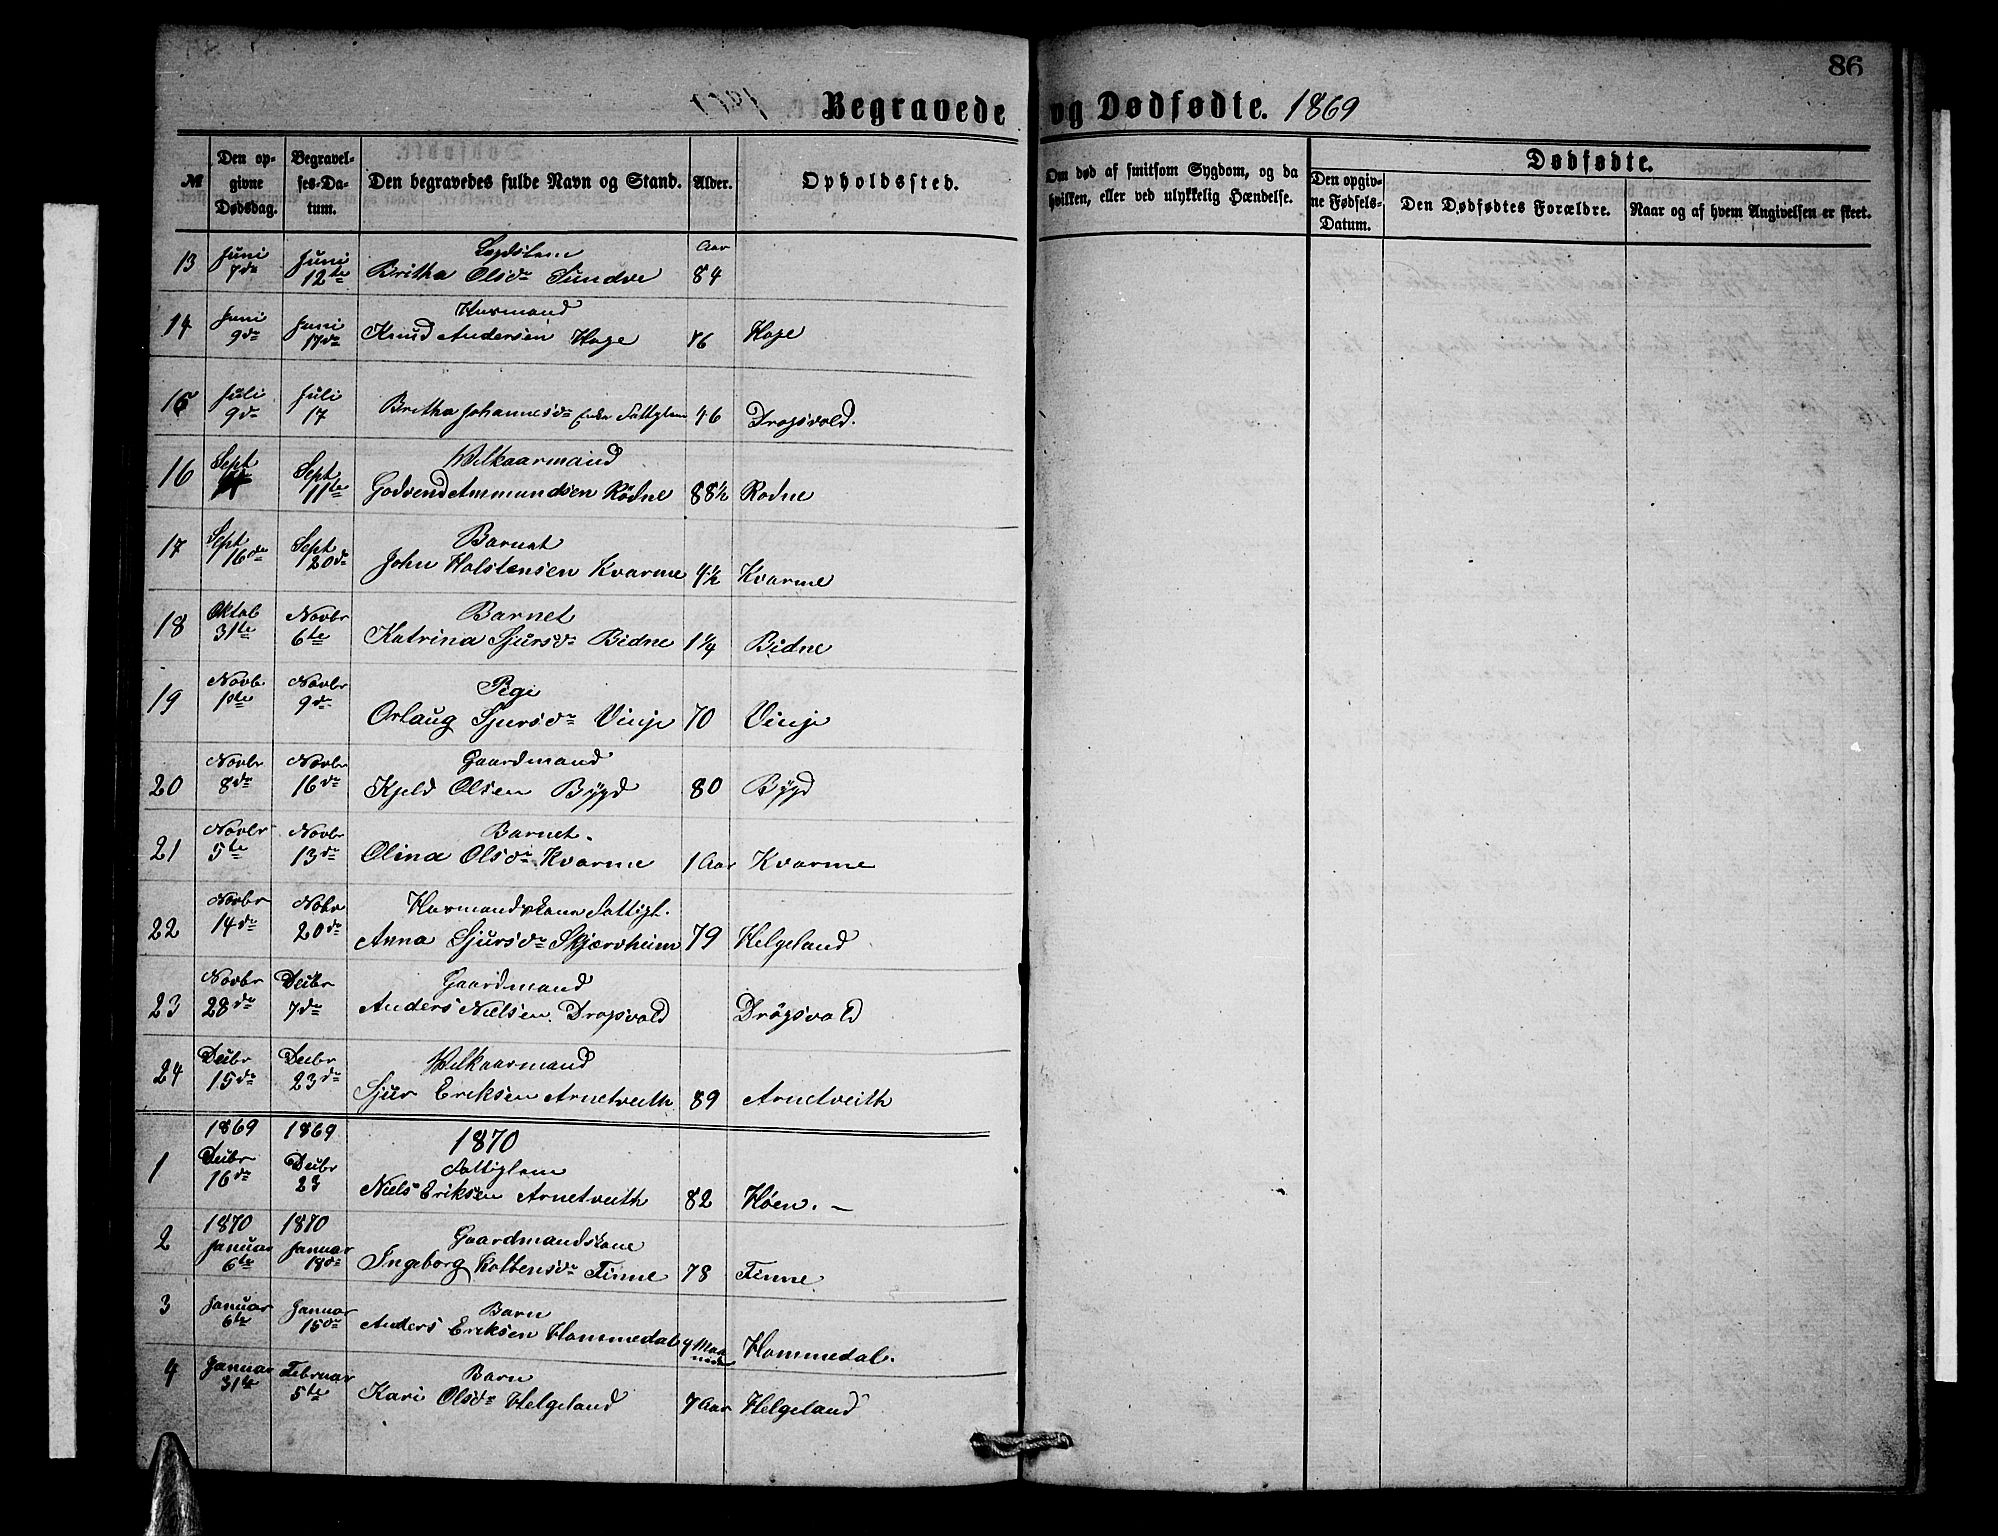 86
Begravede og Dødfødte. 1869
№
Den opgivne Dødsdag.
Begravelses-Datum.
Den begravedes fulde Navn og Stand.
Alder.
Opholdssted.
Om død af smitsom Sygdom, og da hvilken, eller ved ulykkelig Hændelse.
Dødfødte.
Den opgivne Fødsels-Datum.
Den Dødfødtes Forældre.
Naar og af hvem Angivelsen er skeet.
13 Juni 7de Juni 12te Lægdslem Aar
Britha Olsdr Sundve 84
14 Juni 9de Juni 17de Husmand
Knud Andersen Hage 76 Hage
15 Juli 9de Juli 17 Britha Johannesdr Enke Fattiglem 46 Drogsvold.
16 Sept Sept 11te Wilkaarmand
Godvend Ammundsen Rødne 88½ Rodne
17 Sept 16de Sept 20de Barnet
John Holstensen Kvarme 4½ Kvarme
18 Oktob 31te Novbr 6te Barnet
Katrina Sjursdr Bidne 1¼ Bidne
19 Novb 1ste Novbr 9de Pige
Orlaug Sjursdr Vinje 70 Vinje
20 Novbr 8de Novbr 16de Gaardmand
Kjeld Olsen Bygd 80 Bygd
21 Novbr 5te Novbr 13de Barnet.
Olina Olsdr Kvarme 1 Aar Kvarme
22 Novbr 14de Nobr 20de Husmandskone Fattigl.
Anna Sjursdr Skjærvheim 79 Helgeland
23 Novbr 28de Decbr 7de Gaardmand
Anders Nielsen Drogsvold Drøgsvold
24 Decbr 15de Decbr 23de Wilkaarmand
Sjur Eriksen Arnetveith 89 Arnetveith
1869 1869 1870
1 Decbr 16de Decbr 23 Fattiglem
Niels Eriksen Arnetveith 82 Høen. —
2 1870 1870 Gaardmandskone
Januar 6te Januar 18de Ingeborg Kolbensdr Finne 78 Finne
3 Januar 6te Januar 15de Barn
Anders Eriksen Hommedal 9 Maaneder Hommedal.
4 Januar 31te Februar 5te Barn
Kari Olsdr Helgeland 7 Aar Helgeland